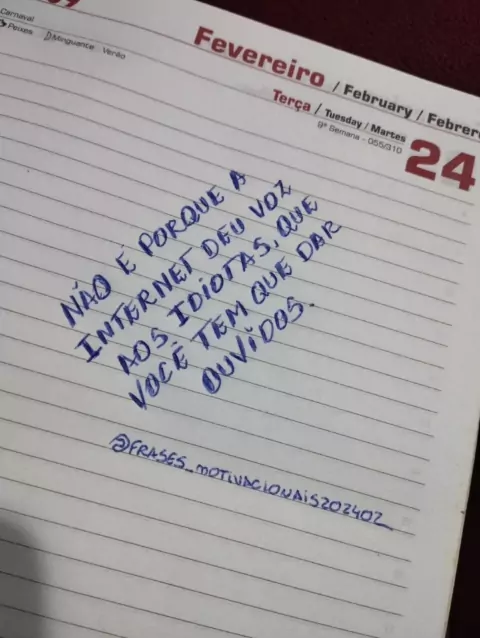 Carnaval
Peixes Minguante Verão
Fevereiro / February / Febrer
Terça / Tuesday / Martes
9ª Semana - 055/310
24
NÃO É PORQUE A
INTERNET DEU VOZ
AOS IDIOTAS, QUE
VOCÊ TEM QUE DAR
OUVIDOS.
@FRASES_MOTIVACIONAIS202402_